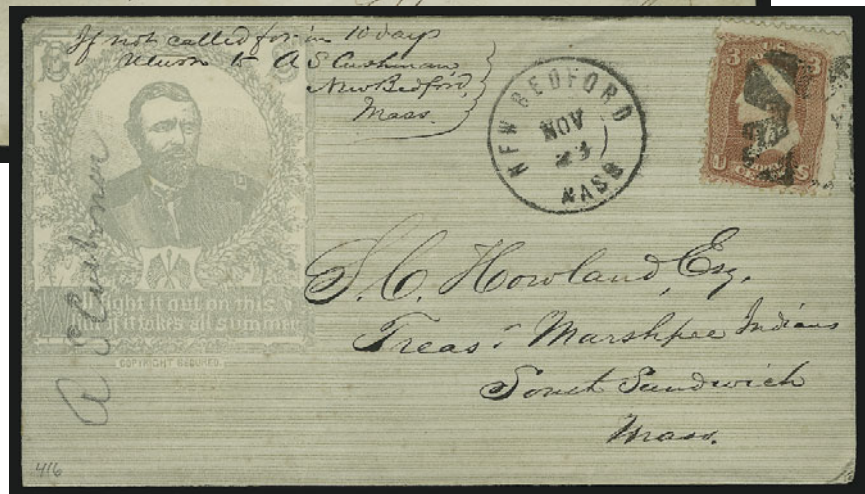 If not called for in 10 days
Return to A S Cushman
New Bedford,
Mass.
NEW BEDFORD
NOV
23
MASS
U.S.
3 3
U S
CENTS
I'll fight it out on this
line if it takes all summer
COPYRIGHT SECURED.
A S Cushman
S. C. Howland, Esq.
Treas.r Marshpee Indians
South Sandwich
Mass.
416